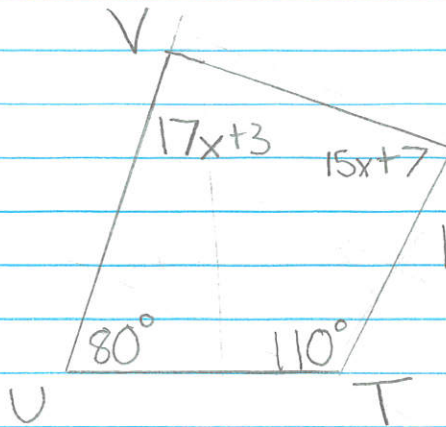 V
17x+3
15x+7
80°
110°
U
T